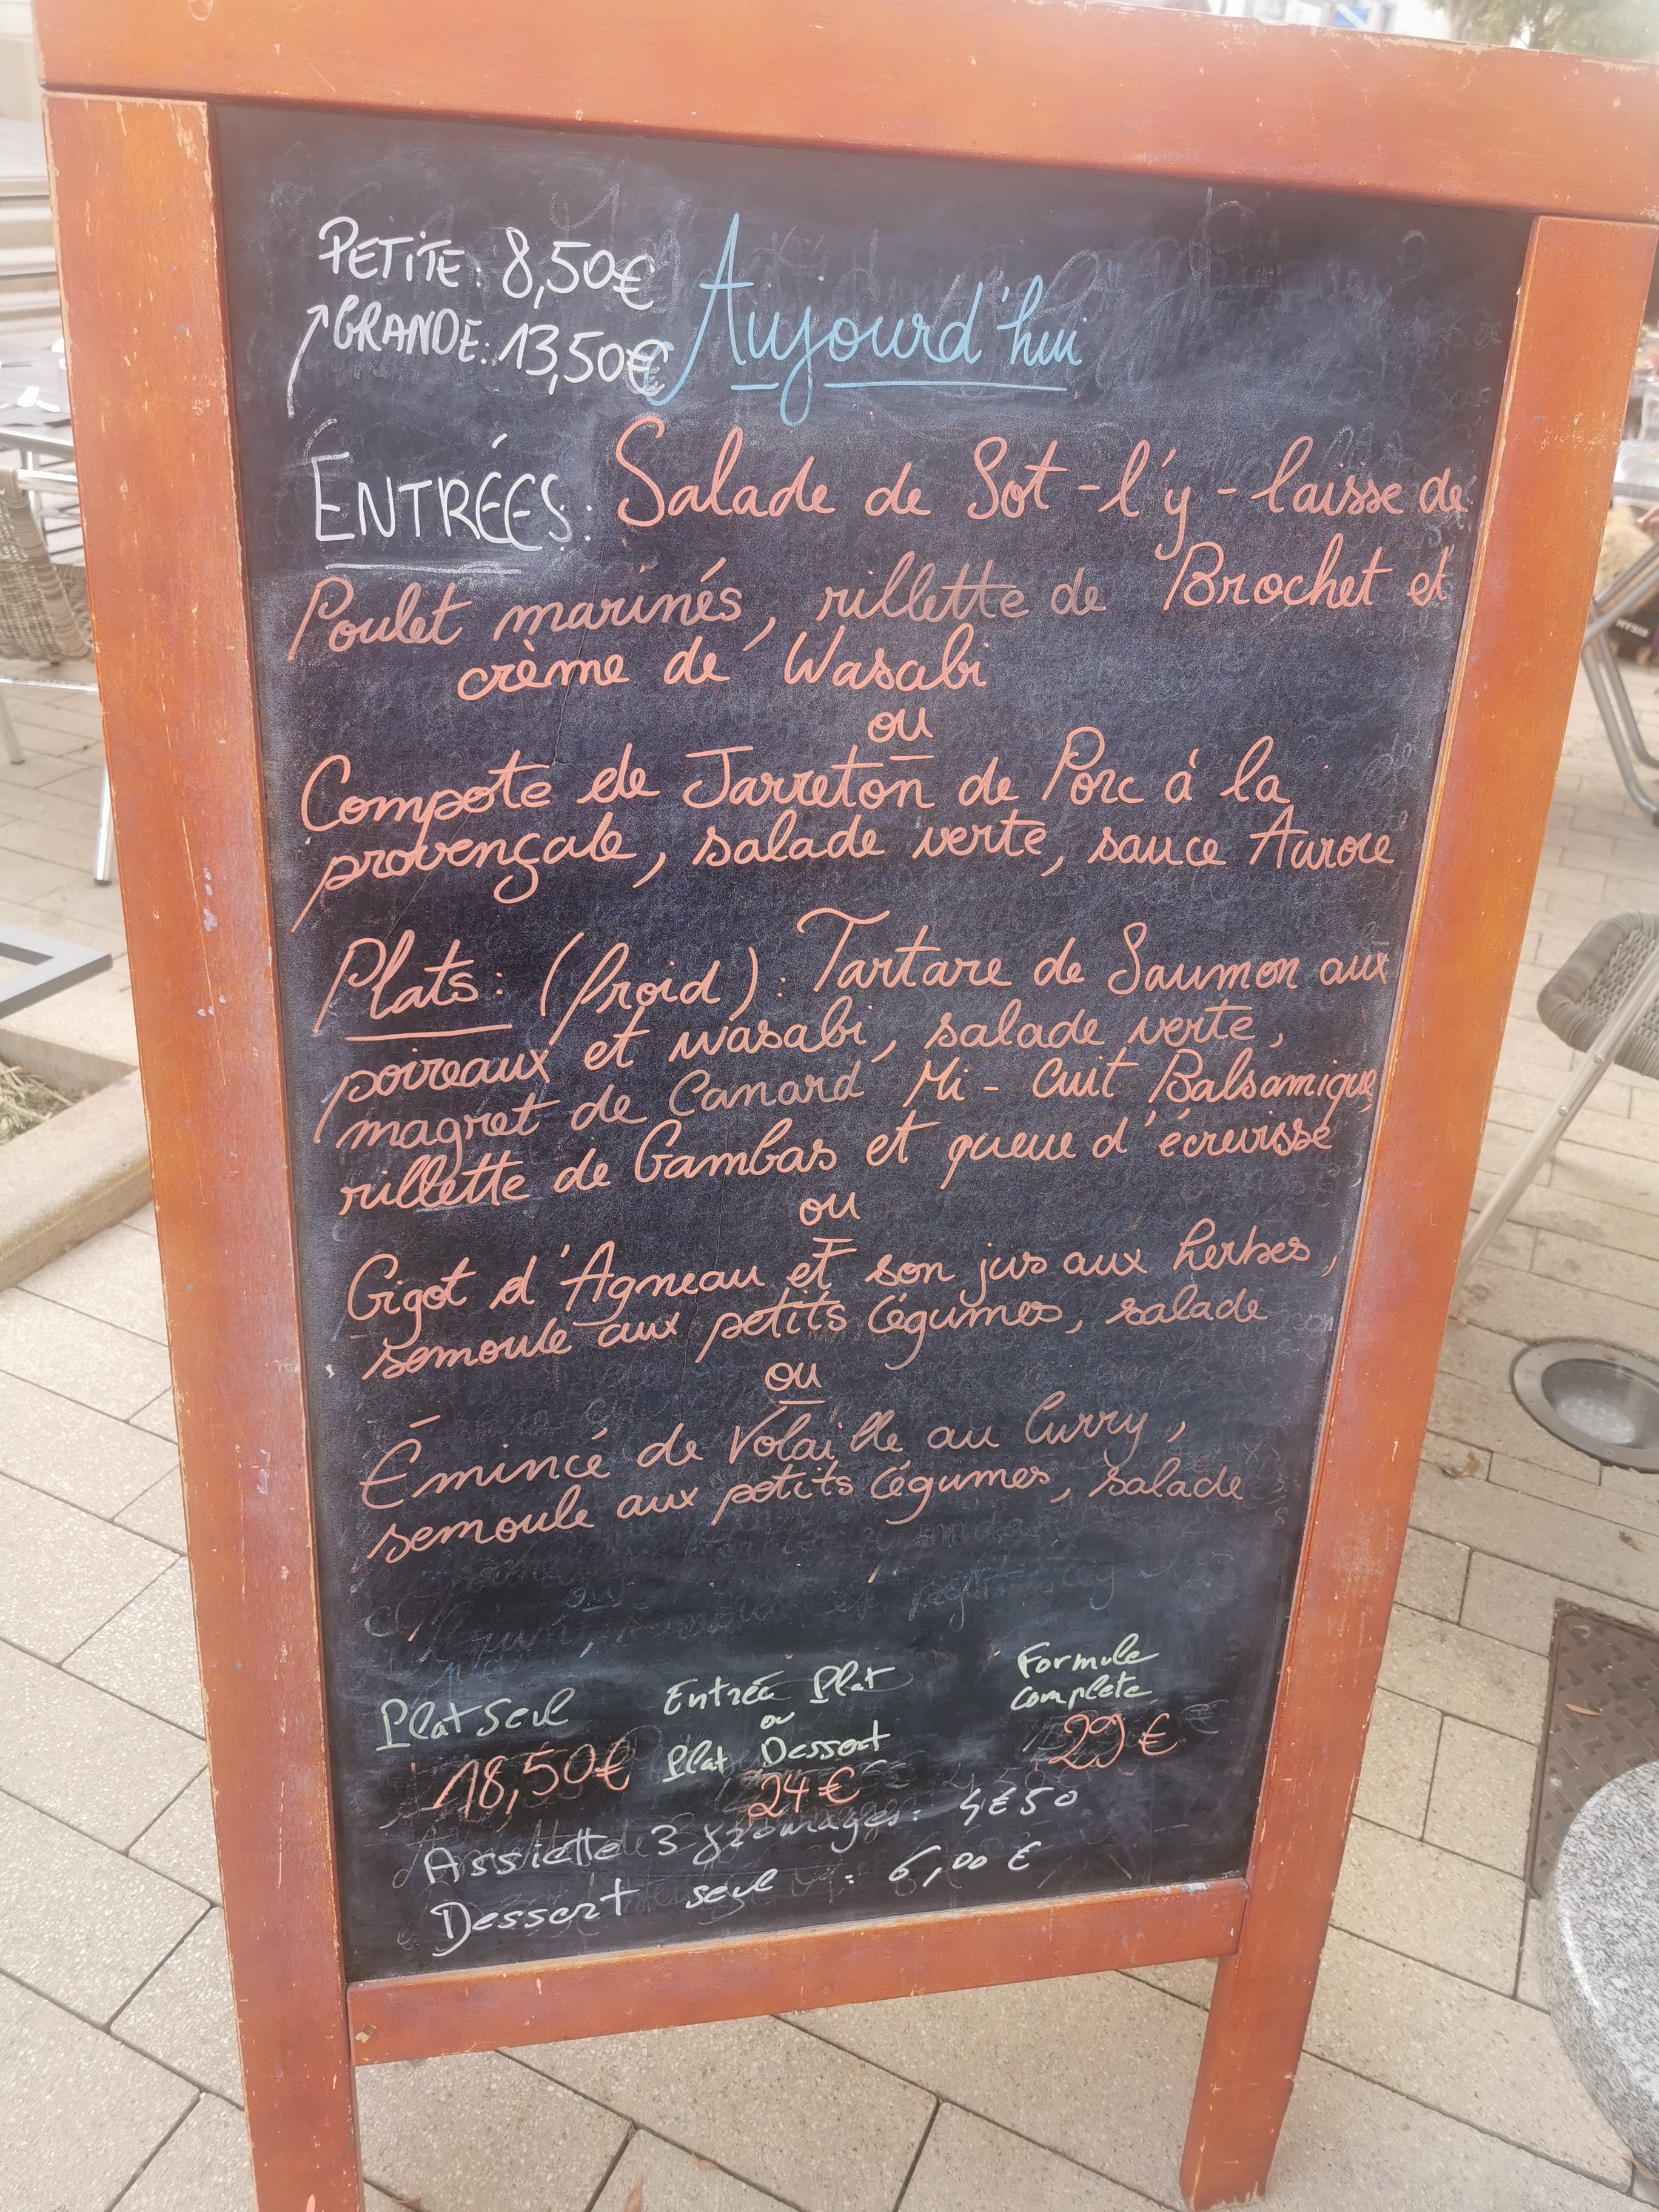 PETITE: 8,50€
GRANDE: 13,50€
Aujourd'hui
ENTRÉES: Salade de Sot-l'y-laisse de
Poulet marinés, rillette de Brochet et
crème de Wasabi
ou
Compote de Jarreton de Porc à la
provençale, salade verte, sauce Aurore
Plats: (froid): Tartare de Saumon aux
poireaux et wasabi, salade verte,
magret de Canard Mi-Cuit Balsamique,
rillette de Gambas et queue d'écrevisse
ou
Gigot d'Agneau et son jus aux herbes,
semoule aux petits légumes, salade
ou
Émincé de Volaille au Curry,
semoule aux petits légumes, salade
Plat seul
18,50€
Entrée Plat
ou
Plat Dessert
24€
Formule
complète
29€
Assiette 3 fromages: 4€50
Dessert seul : 6,00€